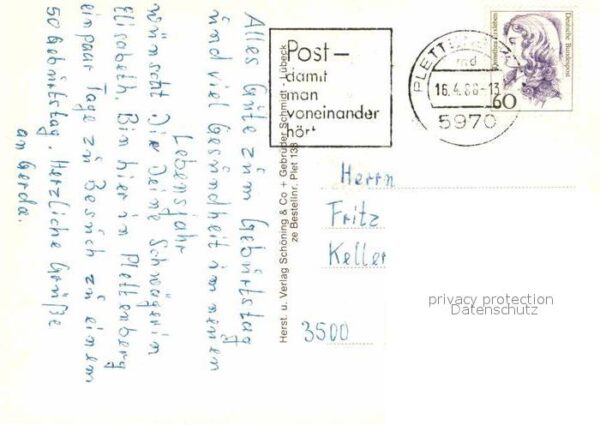 Alles Gute zum Geburtstag
und viel Gesundheit im neuen
Lebensjahr
wünscht Dir Deine Schwägerin
Elisabeth. Bin hier in Plettenberg
ein paar Tage zu Besuch zu einem
50 Geburtstag. Herzliche Grüße
an Gerda.
Herst. u. Verlag Schöning & Co + Gebrüder Schmidt · Lübeck
ze Bestellnr. Plet
Post –
damit
man
voneinander
hört
16.4.88-13
5970
Deutsche Bundespost
60
Herrn
Fritz
Keller
3500
privacy protection
Datenschutz